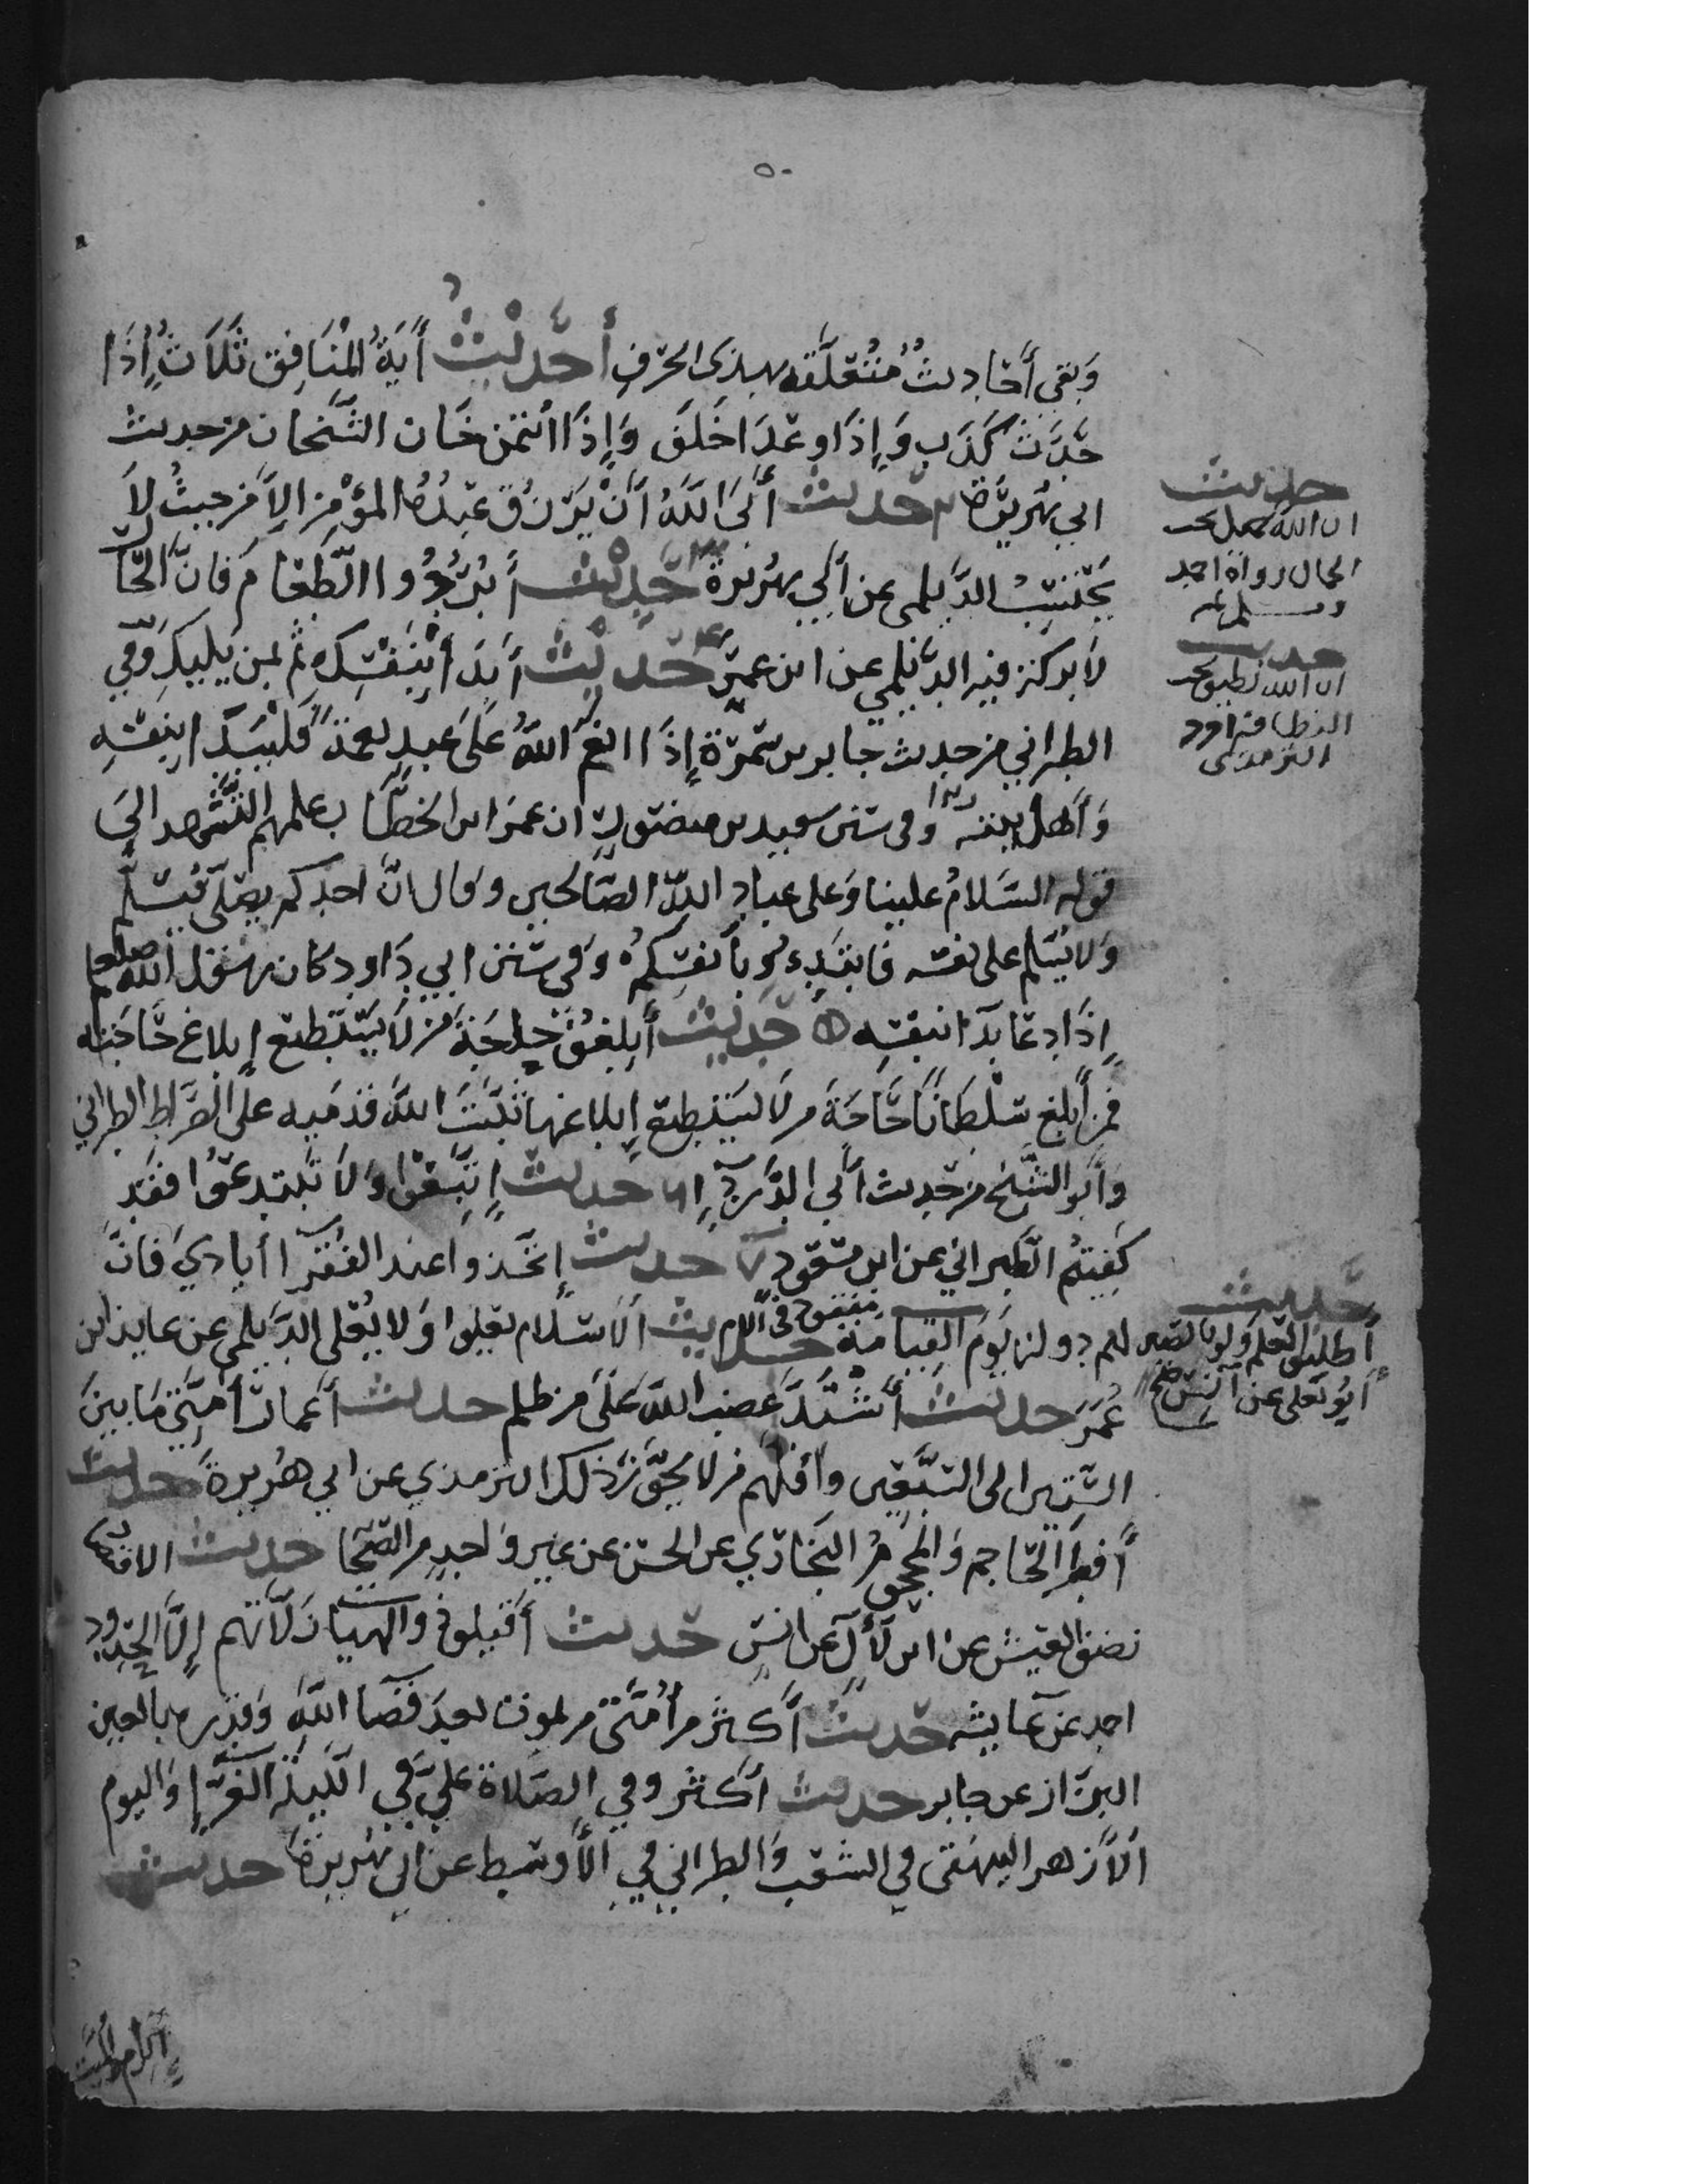 وبقي أحاديث متعلقه بهذى الحرف أحديث أية المنافق ثلاث إذا
حدث كذب وإذا وعد اخلف وإذا ائتمن خان الشيخان من حديث
ابي هريرة ٢ حديث أبى الله أن يرزق عبده المؤمن إلا من حيث لا
يحتسب الديلمي عن أبي هريرة ٣ حديث أبردوا الطعام فان الحار
لا بركة فيه الديلمي عن ابن عمر ٤ حديث أبدأ بنفسك ثم بمن يليك وفي
الطبراني من حديث جابر بن سمرة إذا انعم الله على عبد نعمة فليبدا بنفسه
وأهل بيته وفي سنن سعيد بن منصور ان عمر ابن الخطاب علمهم التشهد الى
قوله السلام علينا وعلى عباد الله الصالحين وقال ان احدكم يصلي فيسلم
ولا يسلم على نفسه فابدءو بأنفسكم وفي سنن ابي داود كان رسول الله صلعم
إذا دعا بدا بنفسه ٥ حديث أبلغوني حاجة من لا يستطيع إبلاغ حاجته
فمن أبلغ سلطانا حاجة من لا يستطيع إبلاغها ثبت الله قدميه على الصراط الطبراني
وأبو الشيخ من حديث أبي الدرداء ٦ حديث إتبعوا ولا تبتدعوا فقد
كفيتم الطبراني عن ابن مسعود ٧ حديث إتخذوا عند الفقرآ أيادي فان
لهم دولة يوم القيامة حديث الاسلام يعلوا ولا يعلى الديلمي عن عايذ ابن
عمر حديث أشتد غضب الله على من ظلم حديث أعمار أمتي ما بين
الستين الى السبعين وأقلهم من لا يجوز ذلك الترمذي عن ابي هريرة حديث
أفطر الحاجم والمحجوم البخاري عن الحسن عن غير واحد من الصحا حديث الاقتصاد
نصف العيش عن ابن لأل عن انس حديث أقيلو ذوي الهيات زلاتهم إلا الحدود
احمد عن عايشه حديث أكثر من أمتي من يموت بعد قضا الله وقدره بالعين
البزاز عن جابر حديث أكثروا في الصلاة علي في الليلة الغرا واليوم
الأزهر البيهقي في الشعب والطبراني في الأوسط عن ابي هريرة حديث
حديث
ان الله جميل يحب
الجمال رواه احمد
ومسلم
حديث
ان الله نظيف يحب
النظافة
الترمذي
حديث
أطلبوا العلم ولو بالصين
أبو يعلى عن أنس